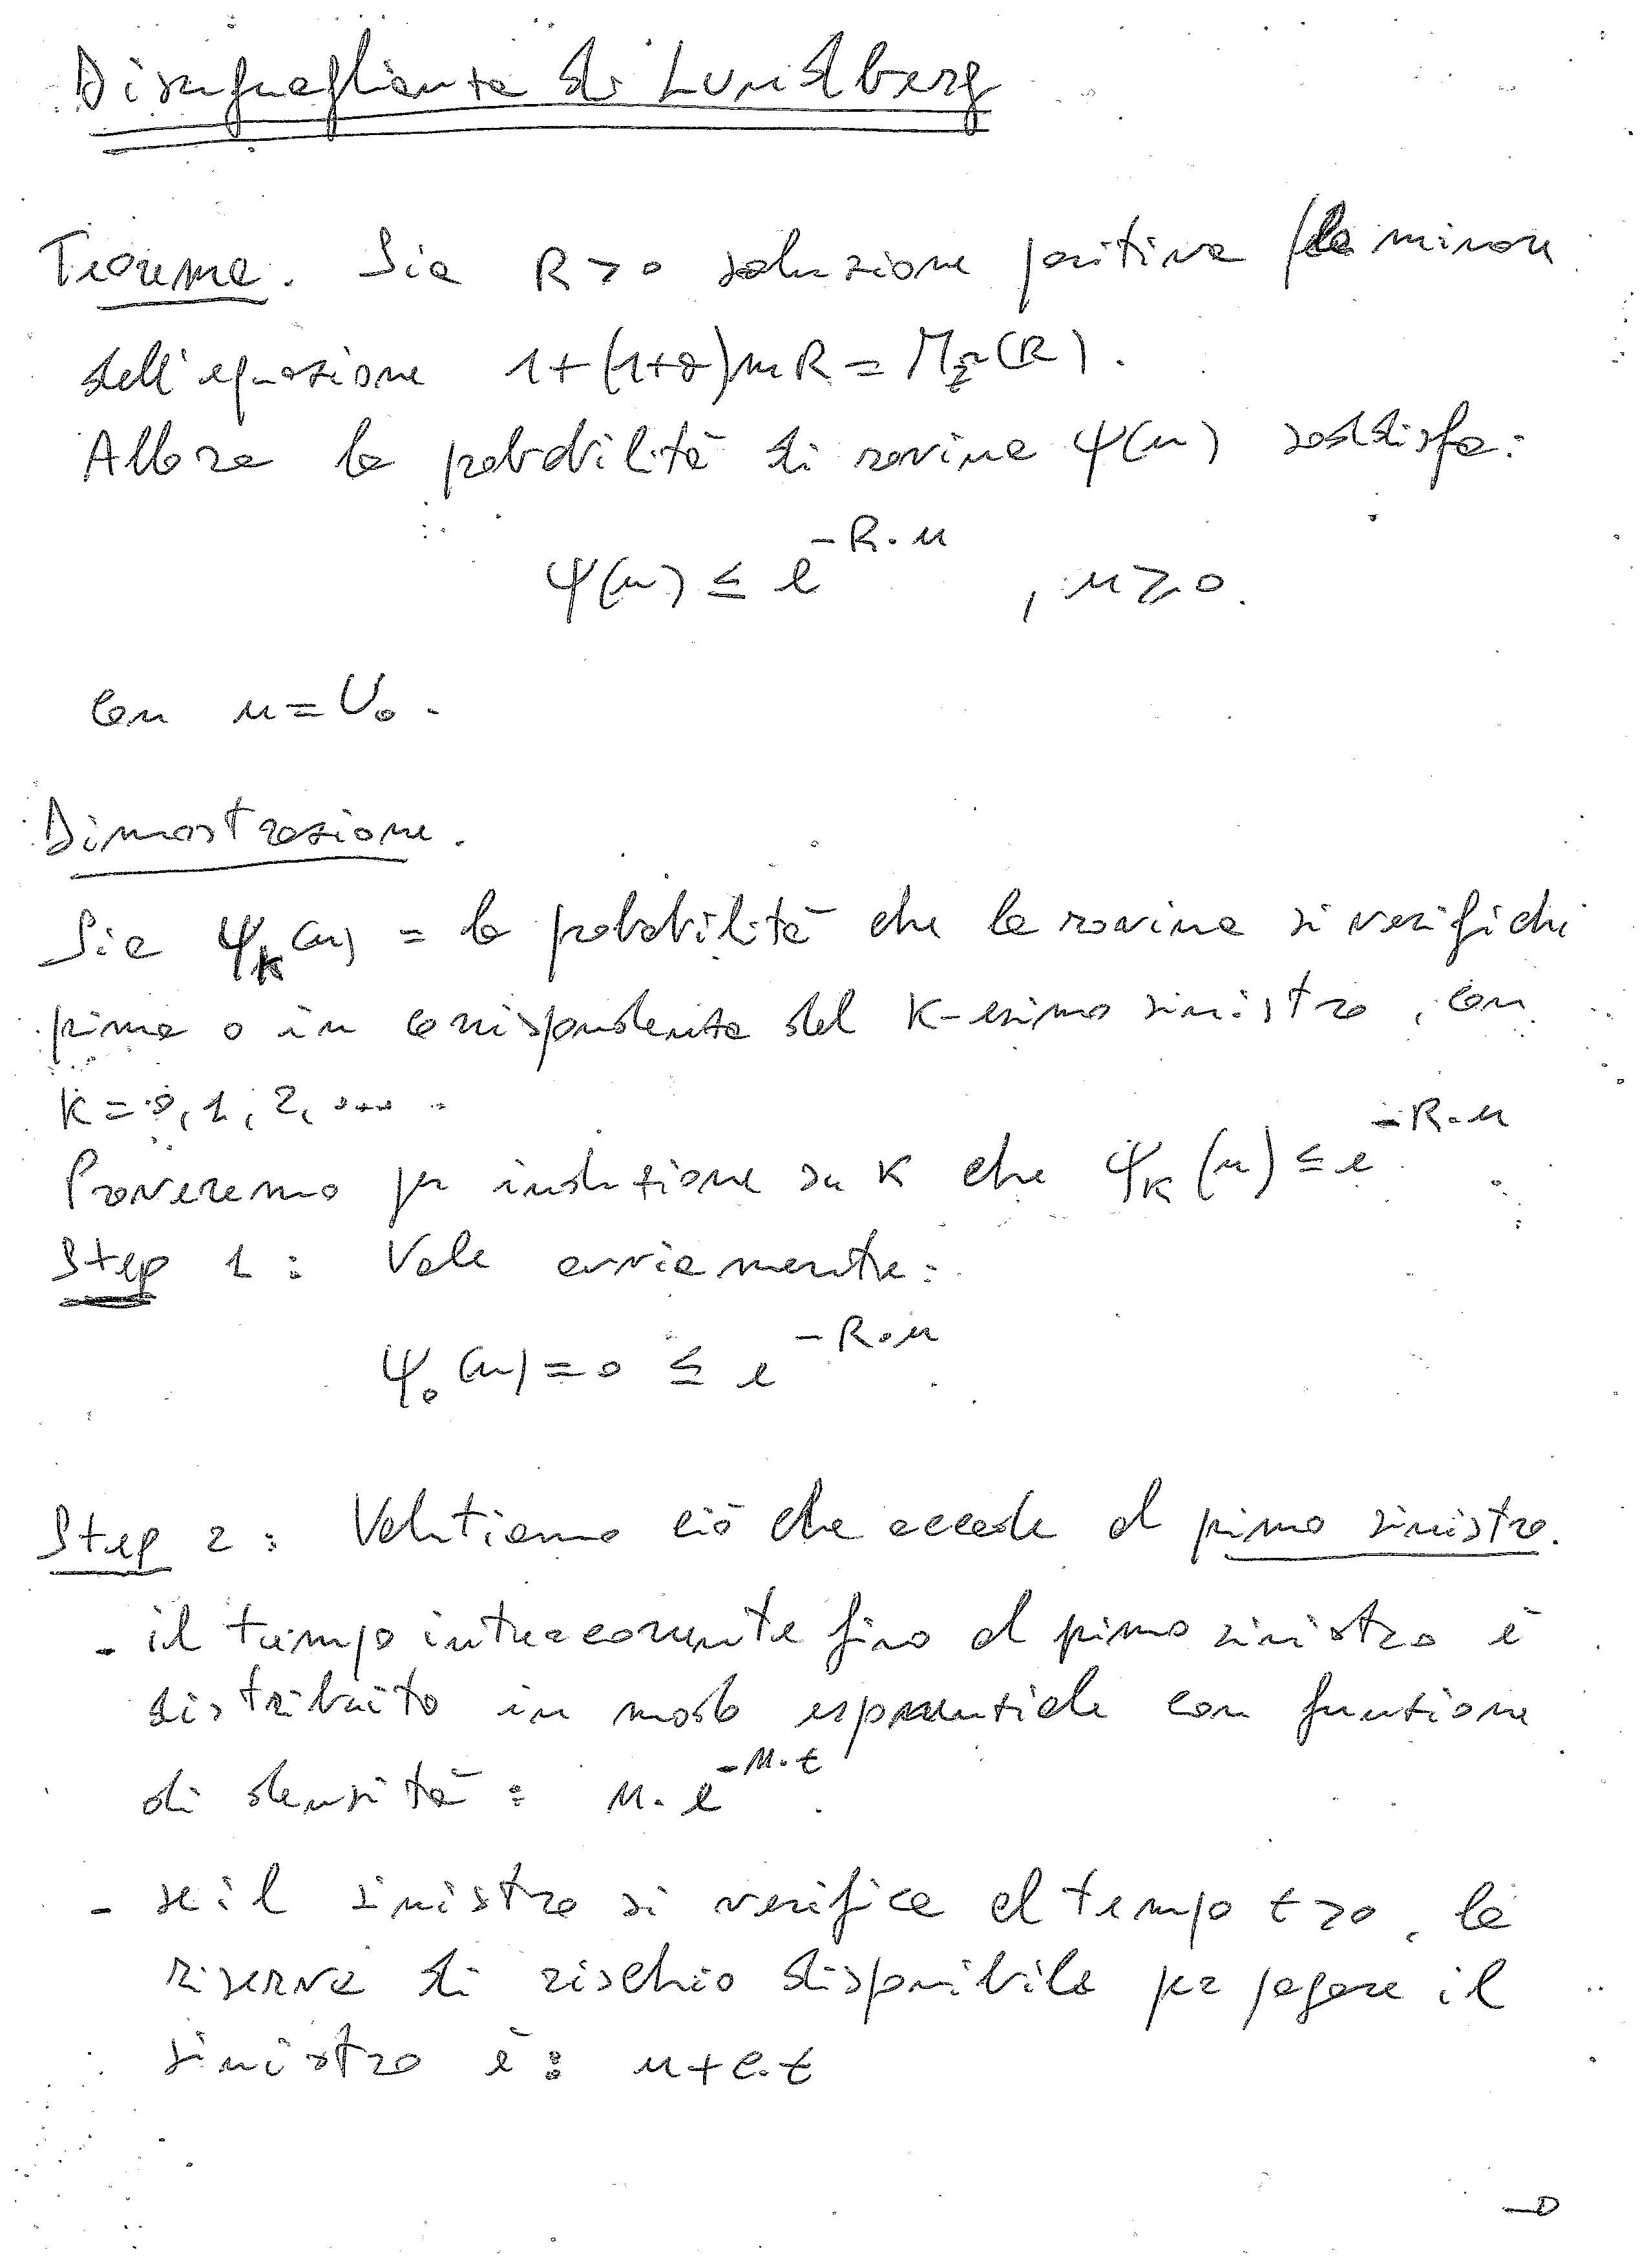 Disuguaglianza di Lundberg
Teorema. Sia R > 0 soluzione positiva (la minore
dell'equazione 1+(1+γ)mR = M_Z̃(R).
Allora la probabilità di rovina ψ(u) soddisfa:
ψ(u) ≤ e^{-R·u} , u ≥ 0.
con u = U₀.
Dimostrazione.
Sia ψ_k(u) = la probabilità che la rovina si verifichi
prima o in corrispondenza del K-esimo sinistro, con
K = 0, 1, 2, ....
Proveremo per induzione su K che ψ_K(u) ≤ e^{-R·u}.
Step 1: Vale ovviamente:
ψ₀(u) = 0 ≤ e^{-R·u}.
Step 2: Valutiamo ciò che accade al primo sinistro.
- il tempo intercorrente fino al primo sinistro è
distribuito in modo esponenziale con funzione
di densità: n·e^{-n·t}.
- se il sinistro si verifica al tempo t>0, la
riserva di rischio disponibile per pagare il
sinistro è: u+c·t